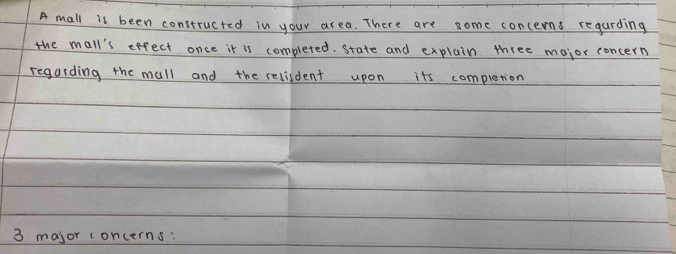 A mall is been constructed in your area. There are some concerns regarding
the mall's effect once it is completed. State and explain three major concern
regarding the mall and the resident upon its completion
3 major concerns: